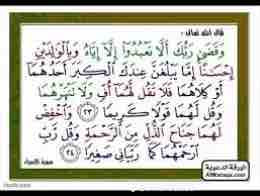 قال الله تعالى :
وَقَضَىٰ رَبُّكَ أَلَّا تَعْبُدُوٓا۟ إِلَّآ إِيَّاهُ وَبِٱلْوَٰلِدَيْنِ
إِحْسَٰنًا إِمَّا يَبْلُغَنَّ عِندَكَ ٱلْكِبَرَ أَحَدُهُمَآ
أَوْ كِلَاهُمَا فَلَا تَقُل لَّهُمَآ أُفٍّ وَلَا تَنْهَرْهُمَا
وَقُل لَّهُمَا قَوْلًا كَرِيمًا ٢٣ وَٱخْفِضْ
لَهُمَا جَنَاحَ ٱلذُّلِّ مِنَ ٱلرَّحْمَةِ وَقُل رَّبِّ
ٱرْحَمْهُمَا كَمَا رَبَّيَانِى صَغِيرًا ٢٤
سورة الإسراء
الورقة الدعوية